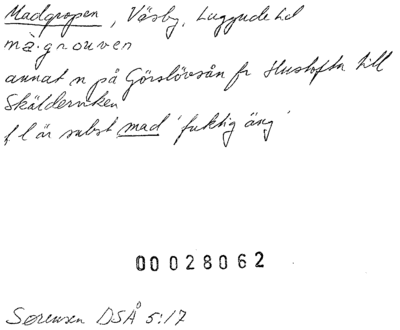 Madgropen, Väsby, Luggude hd
mà.grouven
annat n på Görslövsån fr Hustofta till
Skälderviken
f l är subst mad 'fuktig äng'
00028062
Sørensen DSÅ 5:17